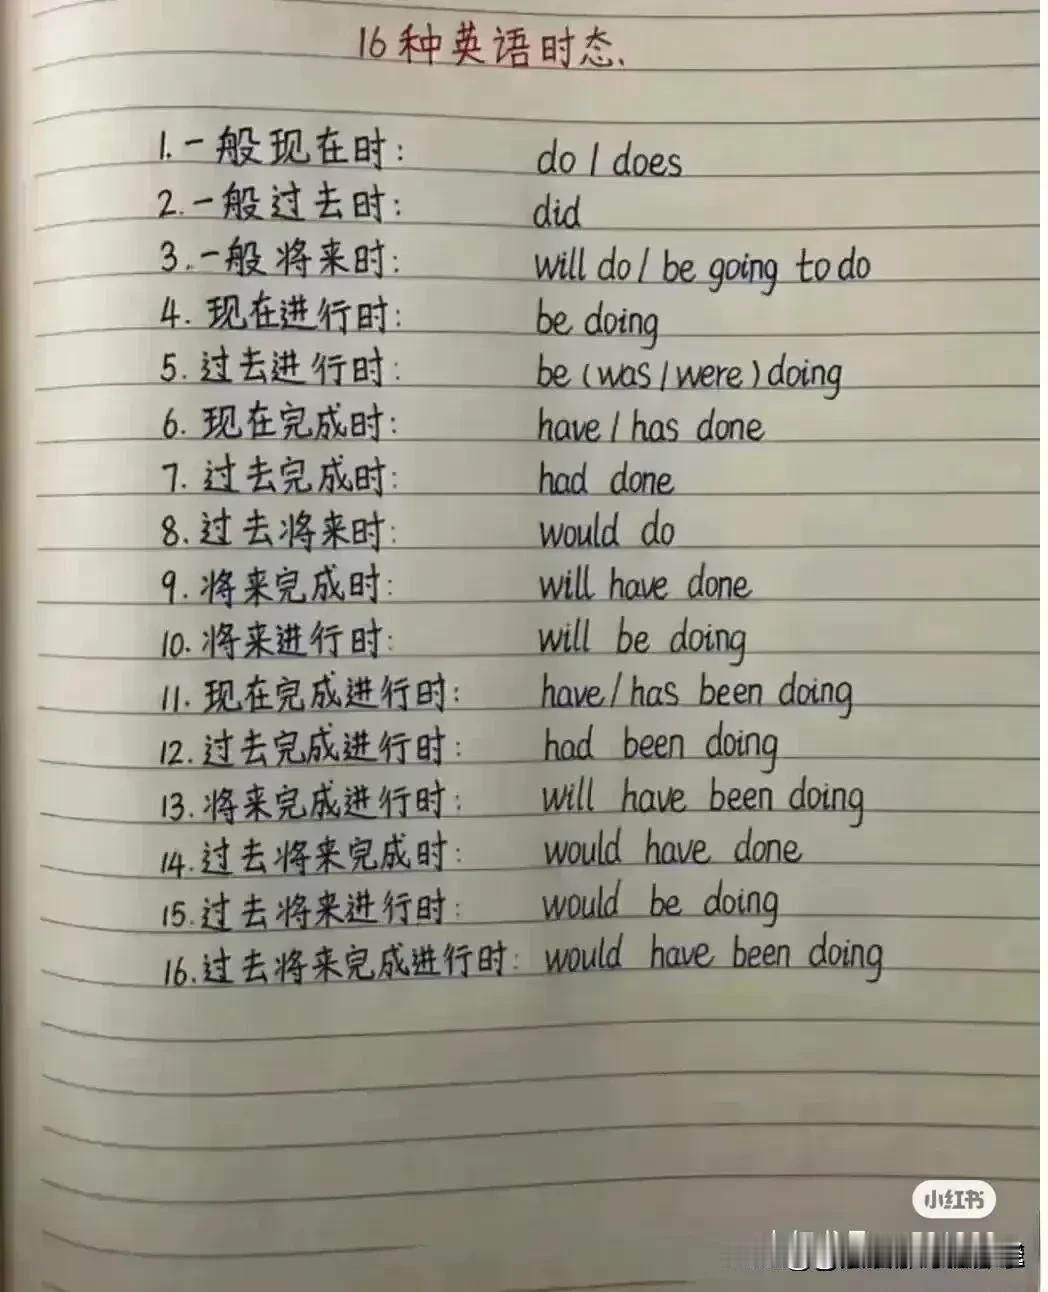 16种英语时态.
1.一般现在时: do / does
2.一般过去时: did
3.一般将来时: will do / be going to do
4.现在进行时: be doing
5.过去进行时: be (was / were) doing
6.现在完成时: have / has done
7.过去完成时: had done
8.过去将来时: would do
9.将来完成时: will have done
10.将来进行时: will be doing
11.现在完成进行时: have / has been doing
12.过去完成进行时: had been doing
13.将来完成进行时: will have been doing
14.过去将来完成时: would have done
15.过去将来进行时: would be doing
16.过去将来完成进行时: would have been doing
小红书